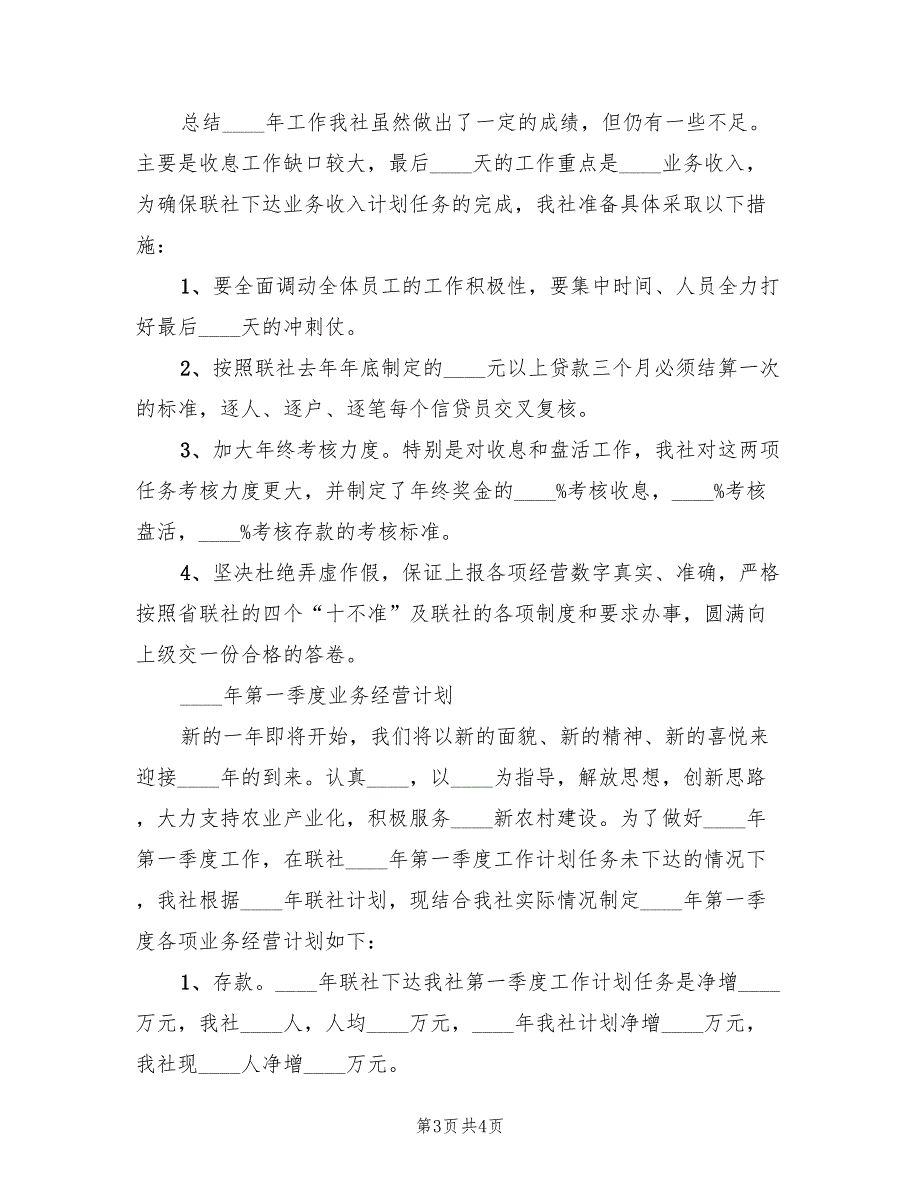 总结____年工作我社虽然做出了一定的成绩，但仍有一些不足。
主要是收息工作缺口较大，最后____天的工作重点是____业务收入，
为确保联社下达业务收入计划任务的完成，我社准备具体采取以下措
施：
1、要全面调动全体员工的工作积极性，要集中时间、人员全力打
好最后____天的冲刺仗。
2、按照联社去年年底制定的____元以上贷款三个月必须结算一次
的标准，逐人、逐户、逐笔每个信贷员交叉复核。
3、加大年终考核力度。特别是对收息和盘活工作，我社对这两项
任务考核力度更大，并制定了年终奖金的____%考核收息，____%考核
盘活，____%考核存款的考核标准。
4、坚决杜绝弄虚作假，保证上报各项经营数字真实、准确，严格
按照省联社的四个“十不准”及联社的各项制度和要求办事，圆满向
上级交一份合格的答卷。
____年第一季度业务经营计划
新的一年即将开始，我们将以新的面貌、新的精神、新的喜悦来
迎接____年的到来。认真____，以____为指导，解放思想，创新思路
，大力支持农业产业化，积极服务____新农村建设。为了做好____年
第一季度工作，在联社____年第一季度工作计划任务未下达的情况下
，我社根据____年联社计划，现结合我社实际情况制定____年第一季
度各项业务经营计划如下：
1、存款。____年联社下达我社第一季度工作计划任务是净增____
万元，我社____人，人均____万元，____年我社计划净增____万元，
我社现____人净增____万元。
第3页 共4页